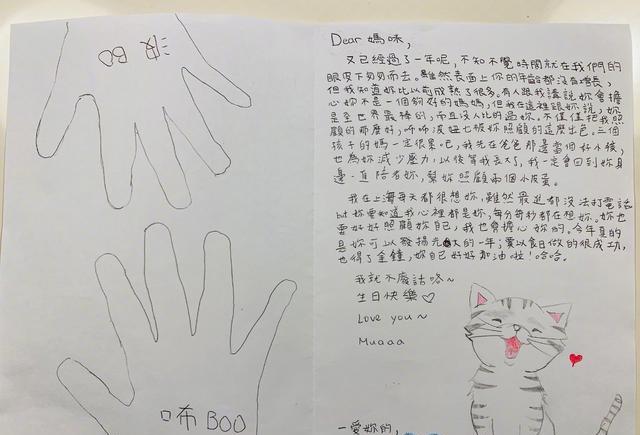 波 BO
咘 BOO
Dear 媽咪,
又已經過了一年呢, 不知不覺時間就在我們的
眼皮下匆匆而去。雖然表面上你的年齡都沒有增長,
但我知道妳比以前成熟了很多。有人跟我講說妳會擔
心妳不是一個夠好的媽媽, 但我在這裡跟妳說, 妳
是全世界最棒的, 而且沒人比的過妳。不僅僅把我照
顧的那麼好, 咘咘波妞也被妳照顧的這麼出色。三個
孩子的媽一定很累吧, 我先在爸爸那邊當個好小孩,
也為妳減少壓力, 以後等我長大了, 我一定會回到妳身
邊一直陪著妳, 幫妳照顧兩個小皮蛋。
我在上海每天都很想妳, 雖然最近都沒法打電話
but 妳要知道我心裡都是妳, 每分每秒都在想妳。妳也
要好好照顧妳自己, 我也會擔心妳的。今年真的
是妳可以發揚光大的一年; 做的很成功,
也得了金鐘, 妳自己好好加油啦! 哈哈。
我就不廢話咯~
生日快樂♡
Love you~
Muaaa
一愛妳的,